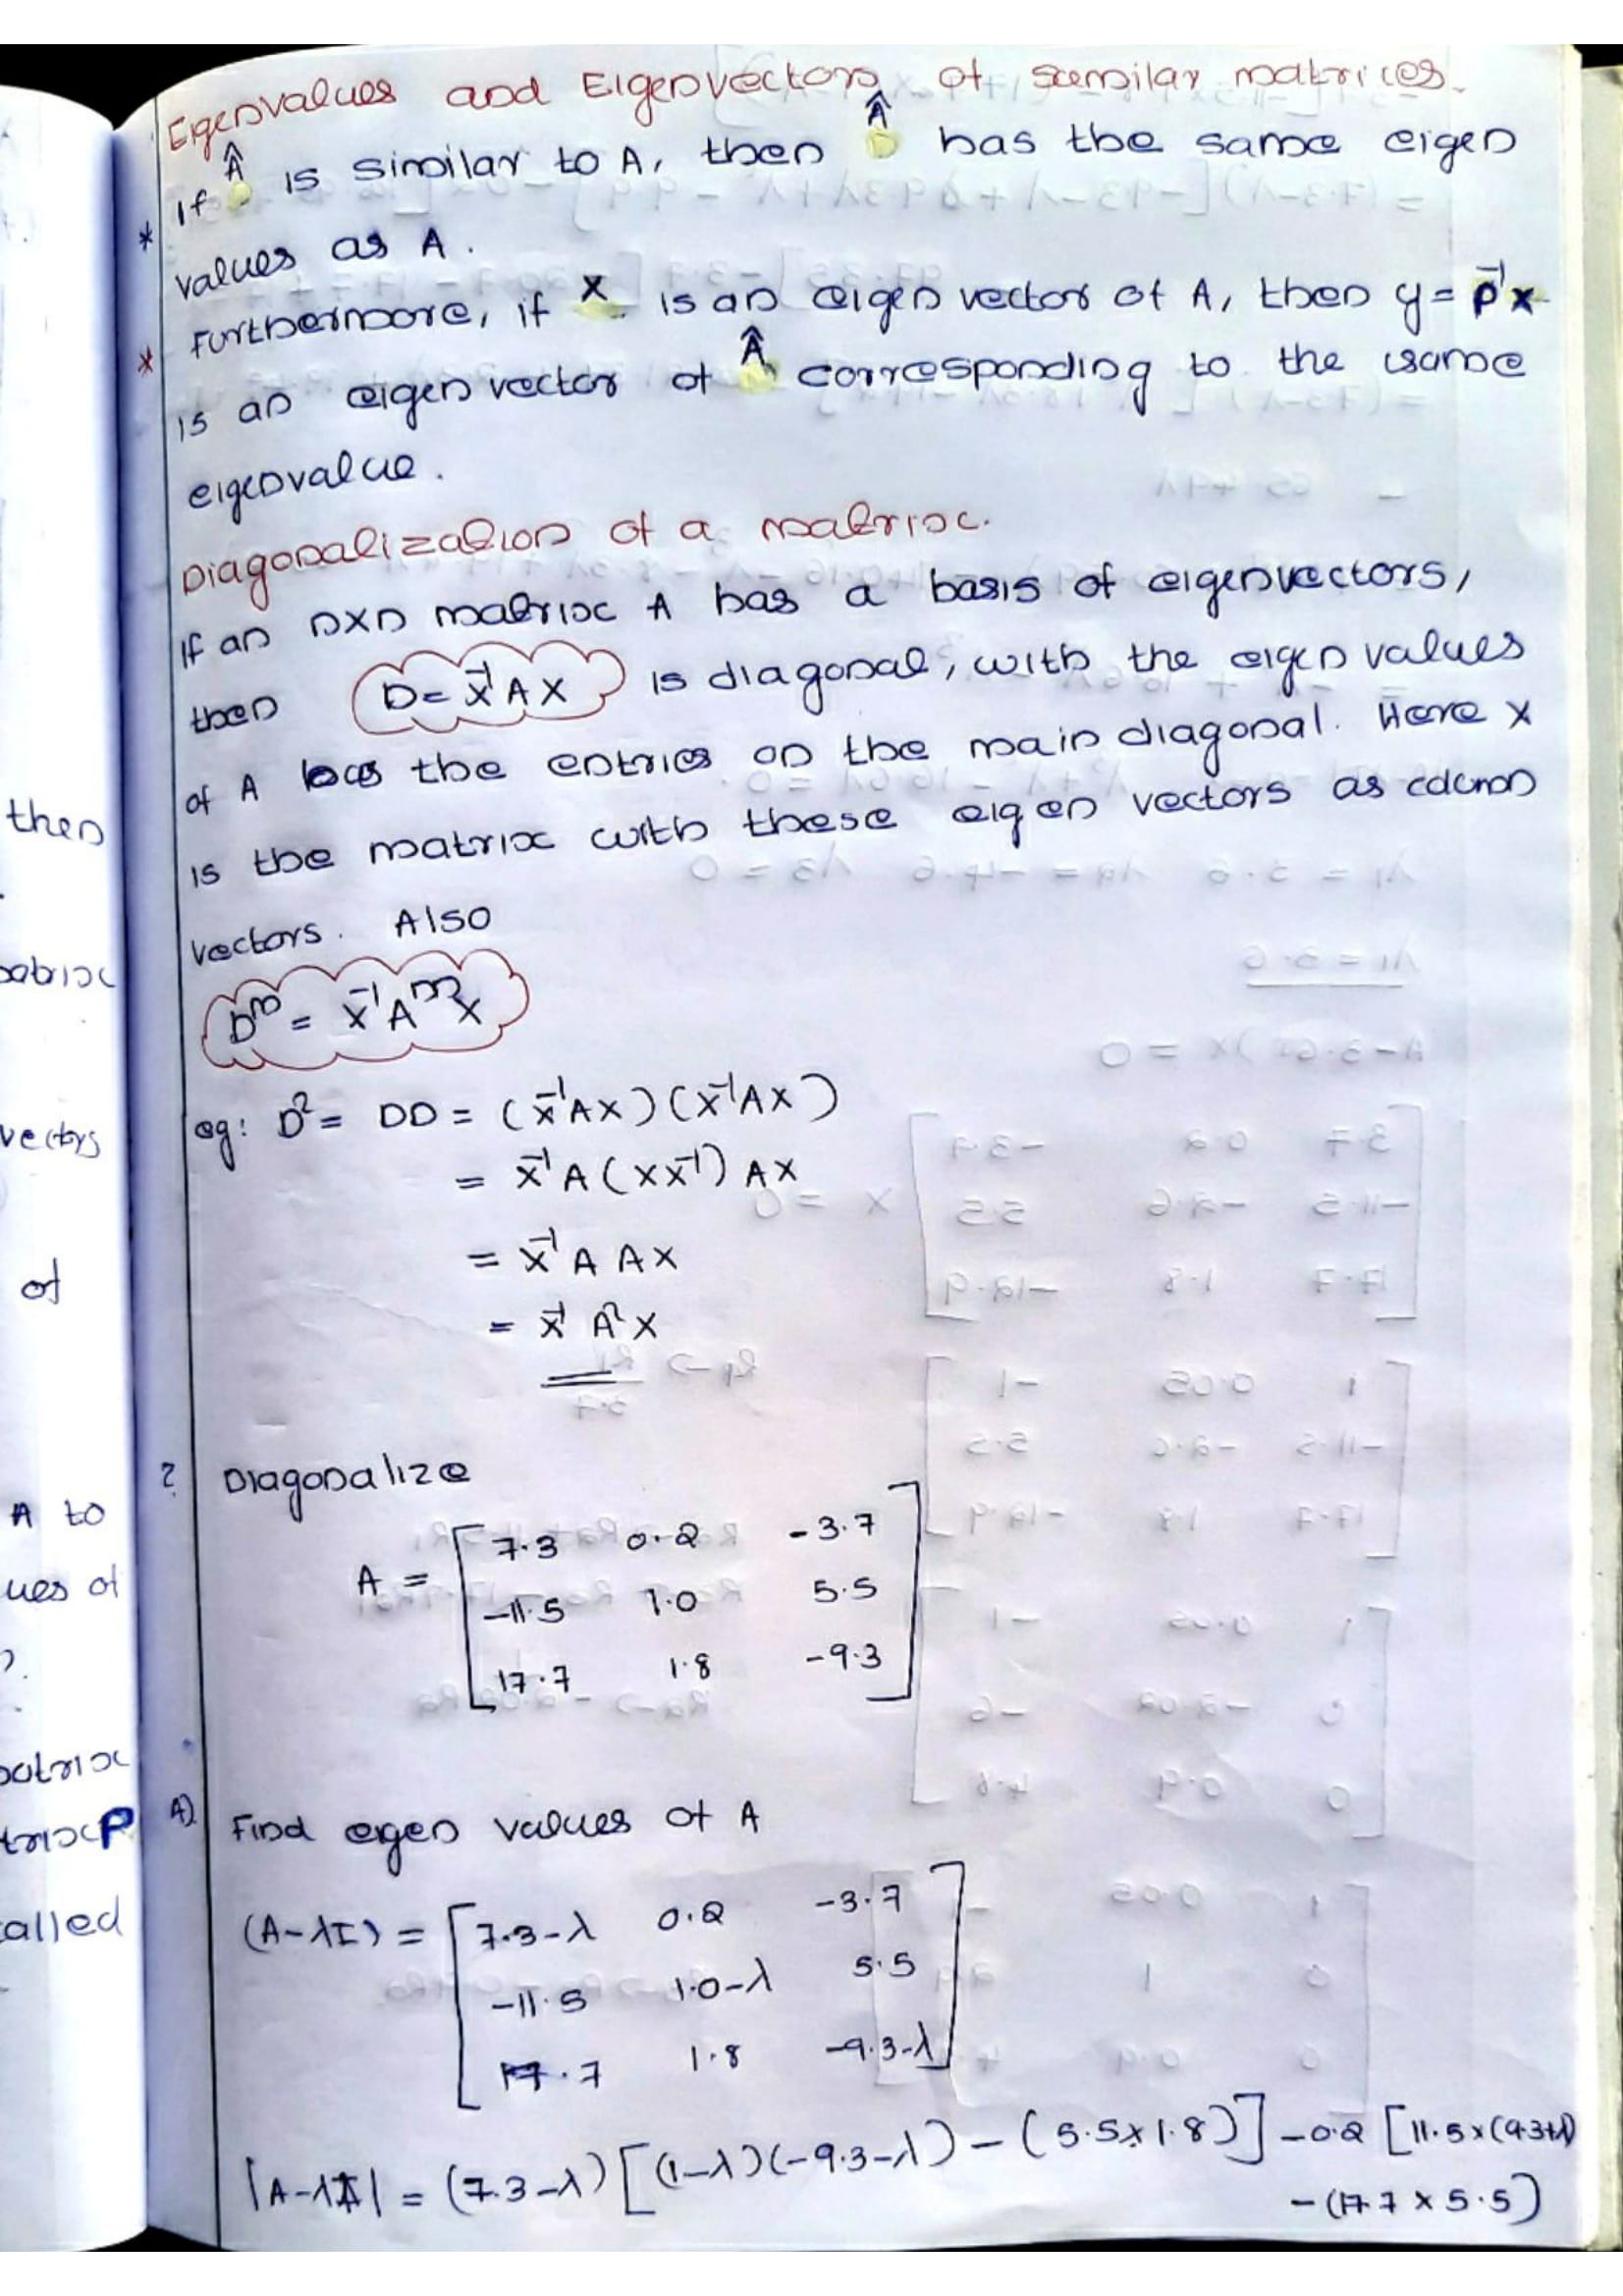 Eigenvalues and Eigenvectors of similar matrices.
* If Â is similar to A, then Â has the same eigen
values as A.
* Furthermore, if x is an eigen vector of A, then y = P⁻¹x
is an eigen vector of Â corresponding to the same
eigenvalue.
Diagonalization of a matrix.
If an n×n matrix A has a basis of eigenvectors,
then D = X⁻¹AX is diagonal, with the eigen values
of A as the entries on the main diagonal. Here X
is the matrix with these eigen vectors as column
vectors. Also
Dᵐ = X⁻¹AᵐX
eg: D² = DD = (X⁻¹AX)(X⁻¹AX)
= X⁻¹A(XX⁻¹)AX
= X⁻¹AAX
= X⁻¹A²X
? Diagonalize
A = [7.3 0.2 -3.7
-11.5 1.0 5.5
17.7 1.8 -9.3]
A) Find eigen values of A
(A-λI) = [7.3-λ 0.2 -3.7
-11.5 1.0-λ 5.5
17.7 1.8 -9.3-λ]
|A-λI| = (7.3-λ)[(1-λ)(-9.3-λ) - (5.5×1.8)] - 0.2[11.5×(9.3+λ)
- (17.7 × 5.5)
then
vectors
of
A to
ues of
?.
matrix
trix P
called